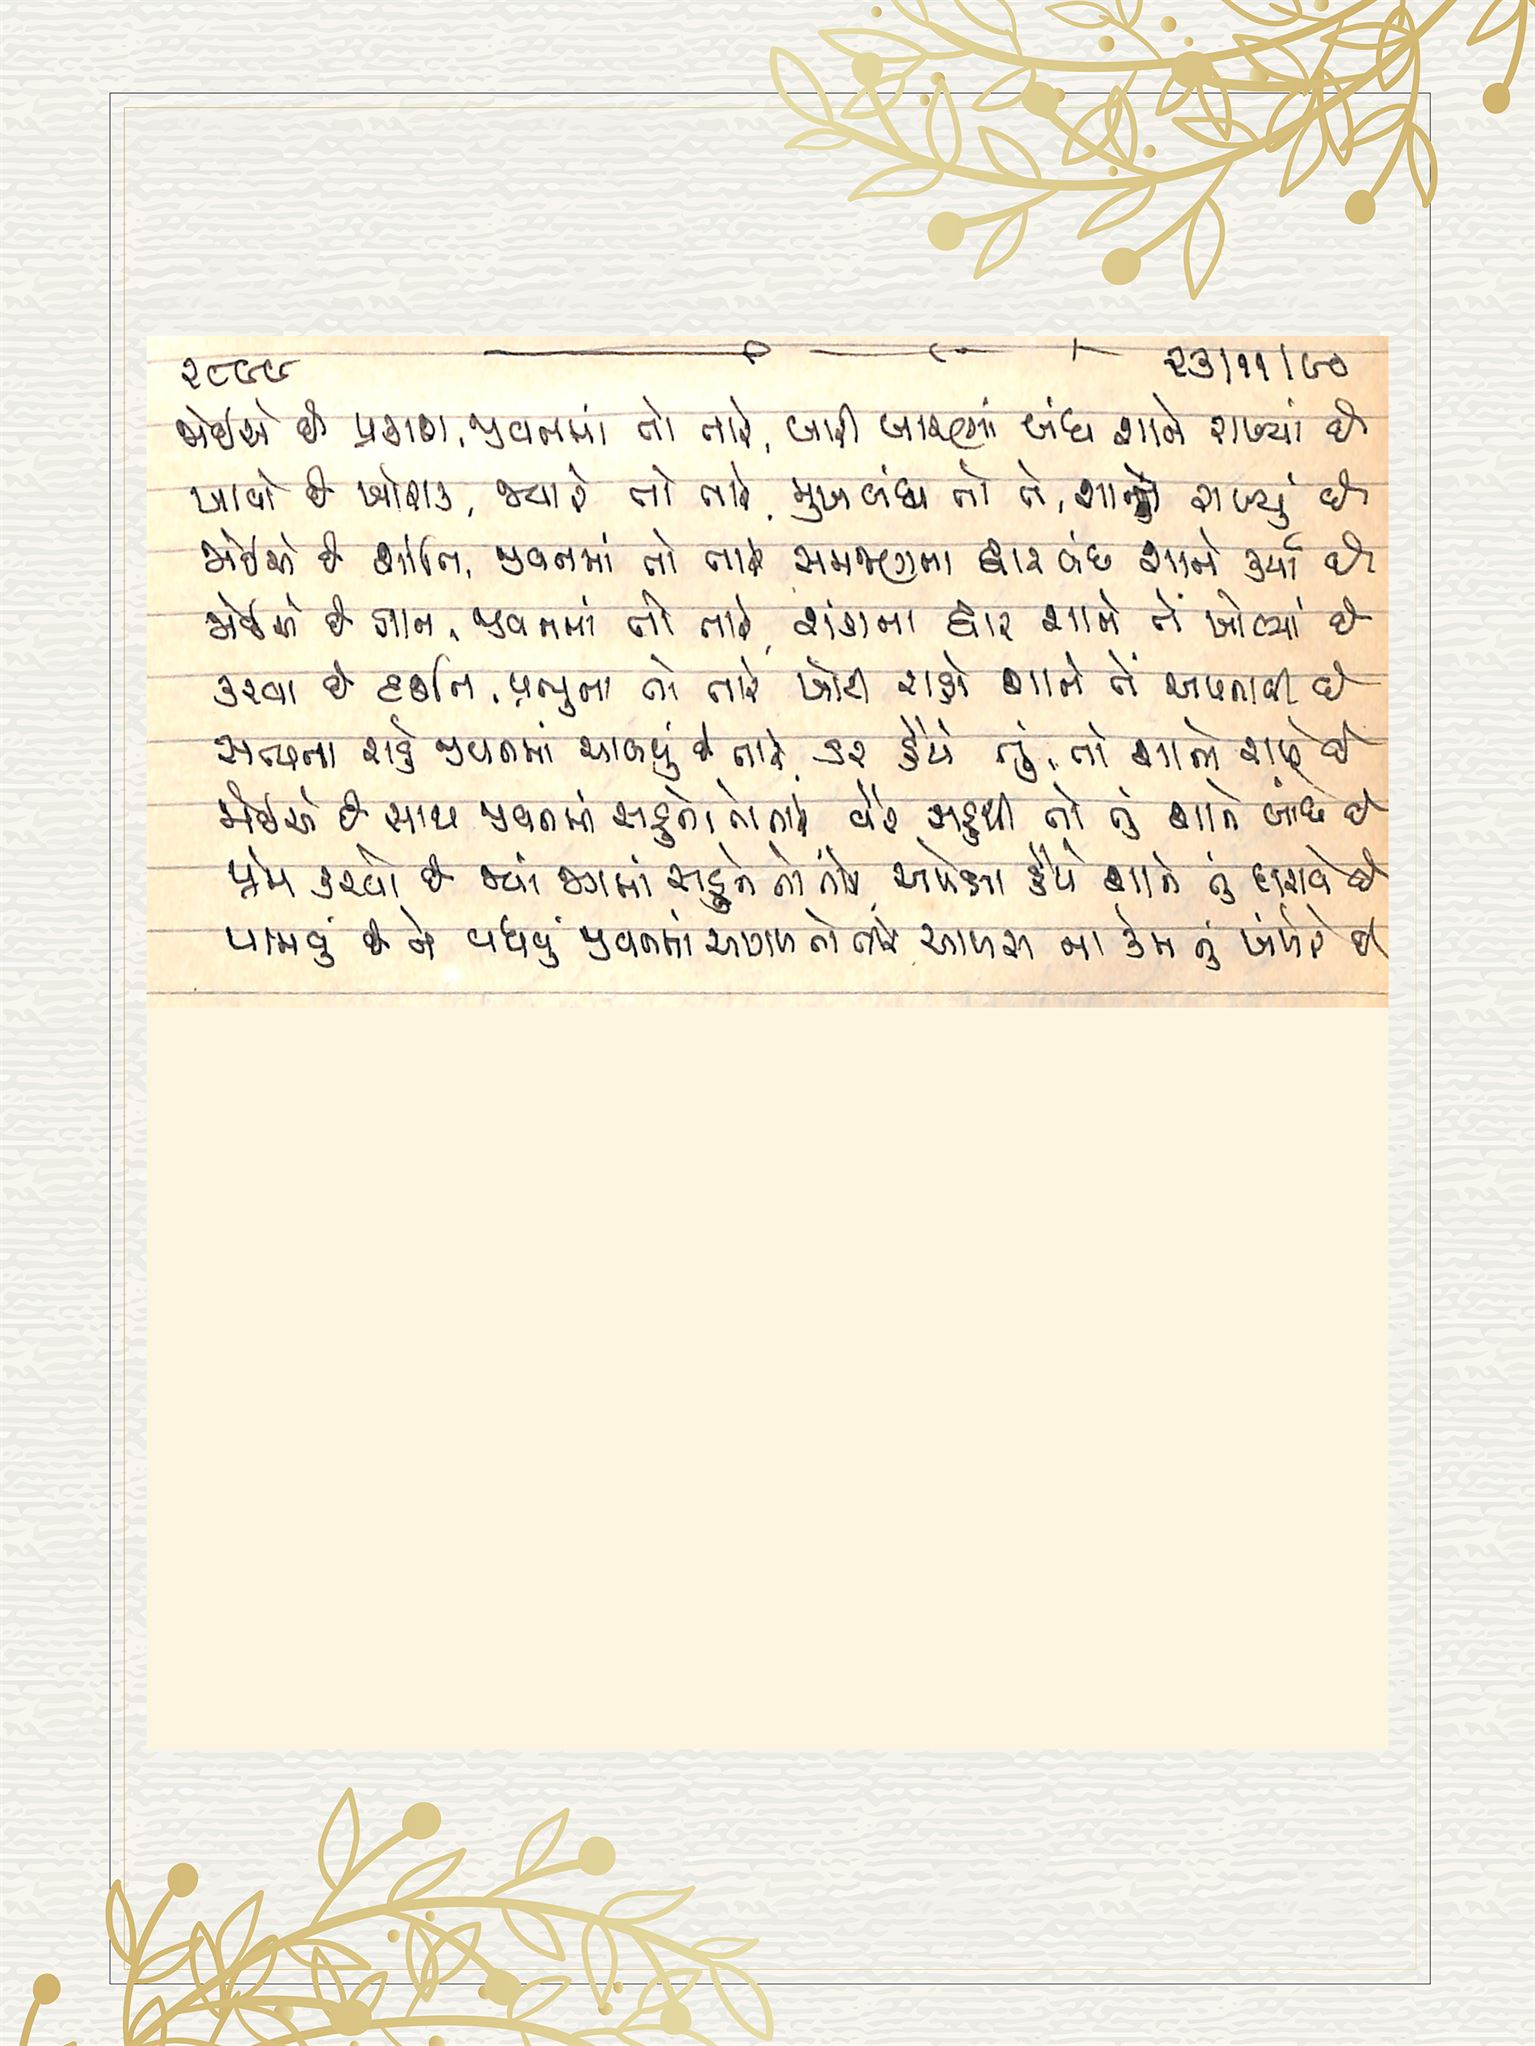 ૨૮૯૯ ૨૩/૧૧/૯૦
જોઈએ છે પ્રકાશ, જીવનમાં તો તારે, બારી બારણાં બંધ શાને રાખ્યાં છે
ખાવો છે ખોરાક, જ્યારે તો તારે, મુખ બંધ તો તેં, શાને રાખ્યું છે
જોઈએ છે શાંતિ, જીવનમાં તો તારે સમજણના દ્વાર બંધ શાને કર્યા છે
જોઈએ છે જ્ઞાન, જીવનમાં તો તારે, શંકાના દ્વાર શાને તેં ખોલ્યાં છે
કરવા છે દર્શન, પ્રભુના તો તારે ખોટી રાહો શાને તેં અપનાવી છે
સત્યના રાહે જીવનમાં ચાલવું છે તારે, ડર હૈયે તું, તો શાને રાખે છે
જોઈએ છે સાથ જીવનમાં સહુનો તો તારે વેર સહુથી તો તું શાને બાંધે છે
પ્રેમ કરવો છે જ્યાં જગમાં સહુને તો તારે, અપેક્ષા હૈયે શાને તું ધરાવે છે
પામવું છે ને વધવું જીવનમાં આગળ તો તારે આળસ ના કેમ તું ખંખેરે છે